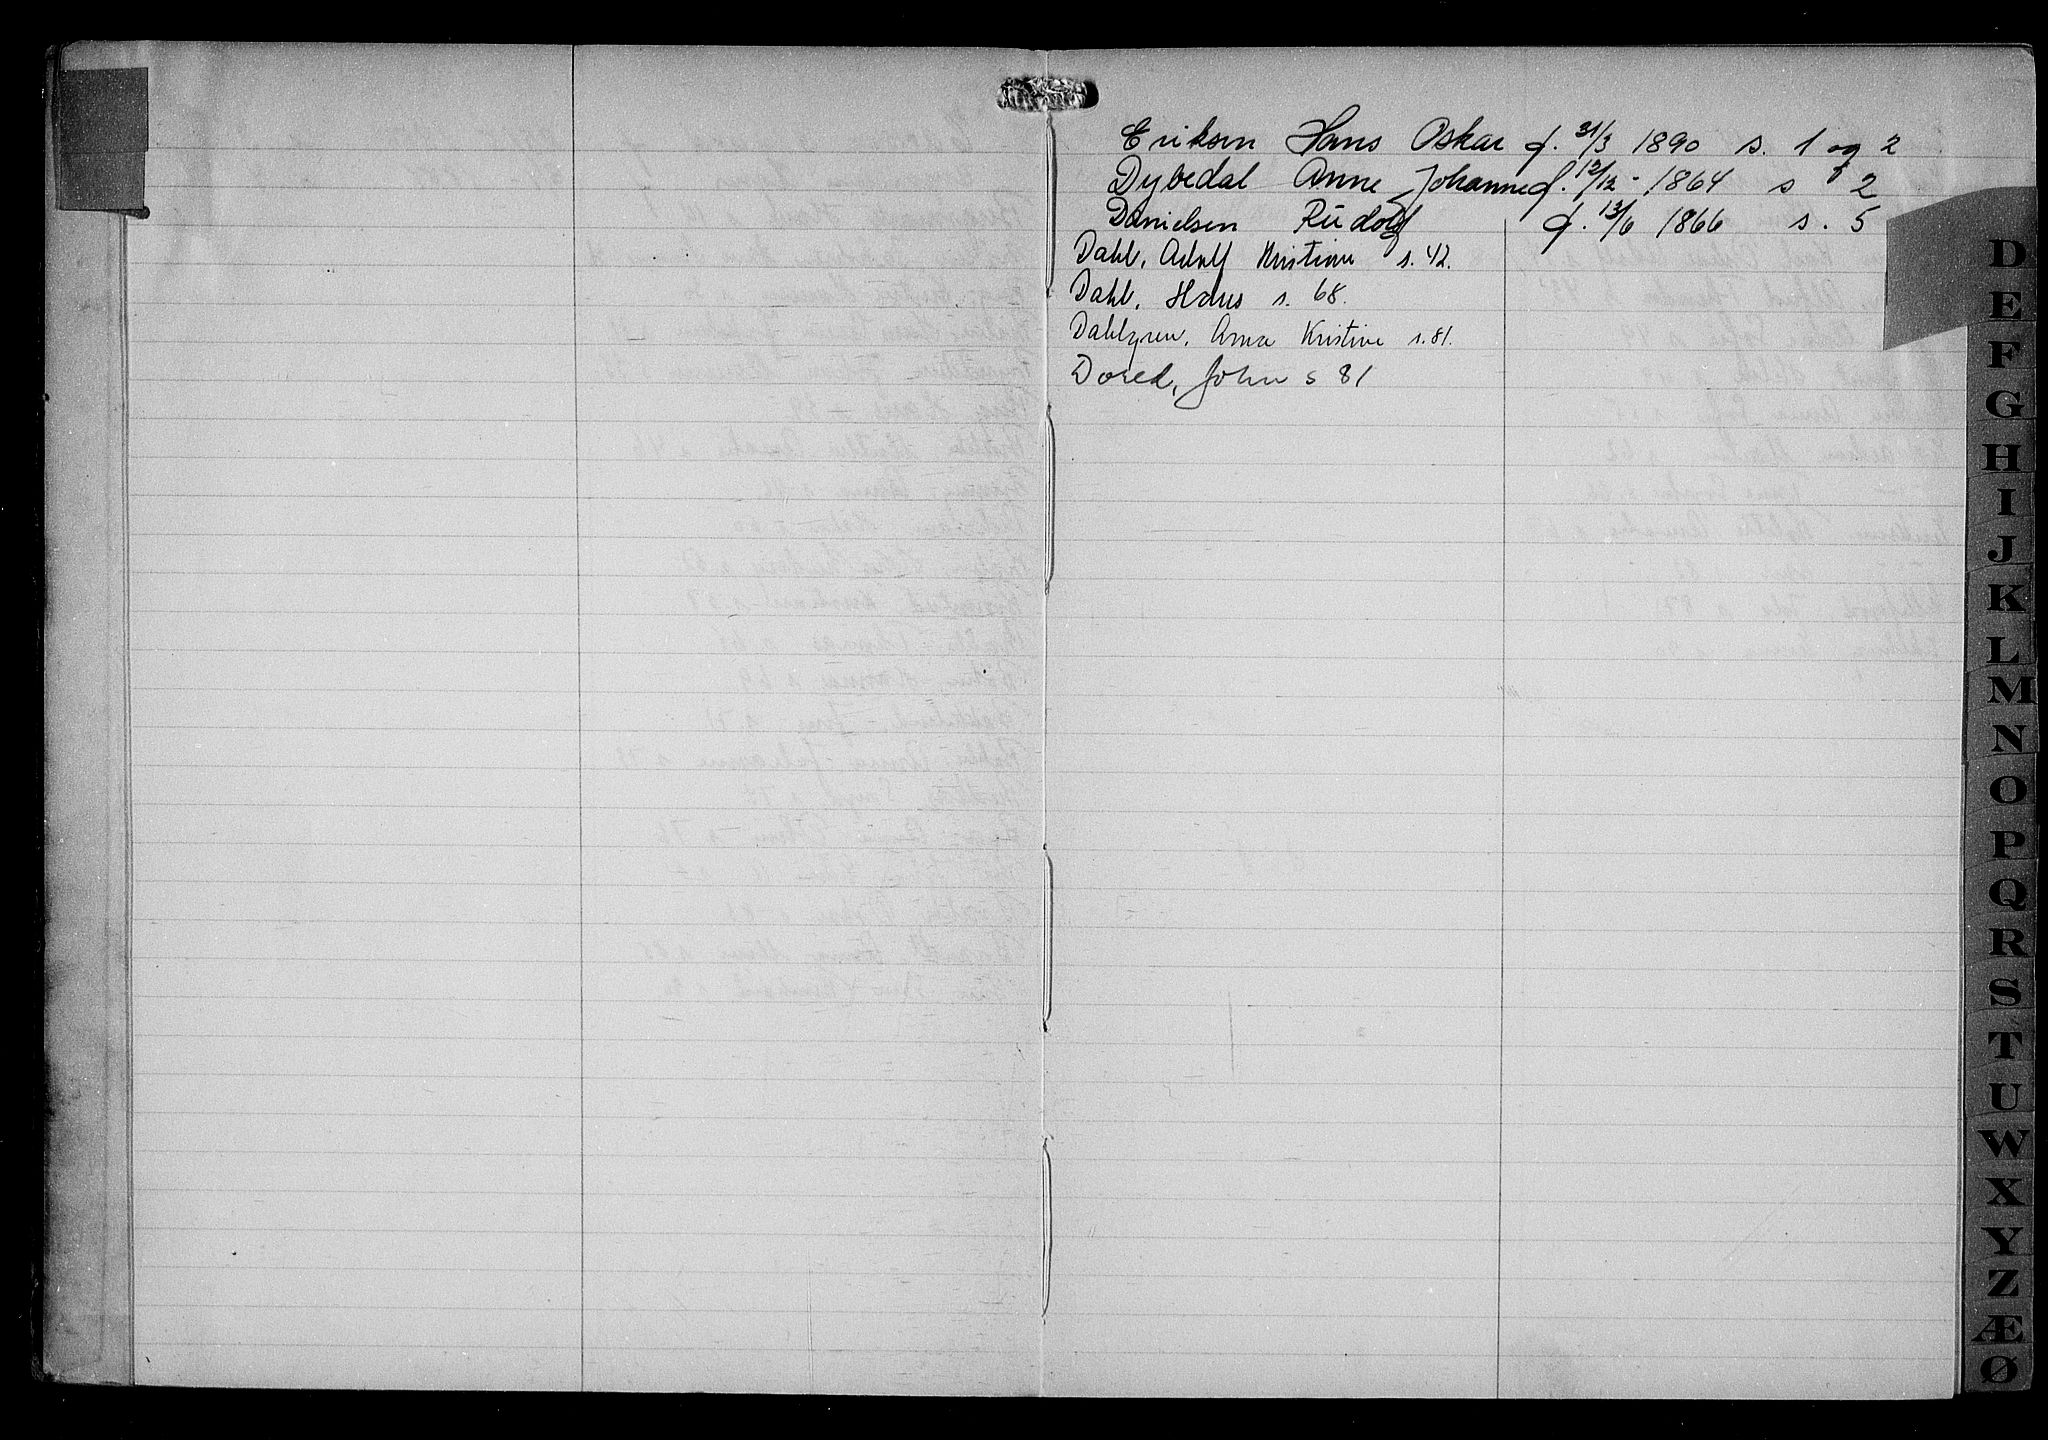 Eriksen Hans Oskar f. 31/3 1890 s. 1 og 2
Dybedal Anne Johanne f. 12/12 - 1864 s 2
Danielsen Rudolf f. 13/6 1866 s. 5
Dahl, Adolf Kristian s. 42.
Dahl, Hans s. 68.
Dahlgren, Anna Kristine s. 81.
Dored, John s 81
D
E
F
G
H
I
J
K
L
M
N
O
P
Q
R
S
T
U
W
X
Y
Z
Æ
Ø